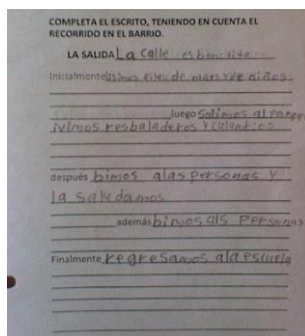 COMPLETA EL ESCRITO, TENIENDO EN CUENTA EL
RECORRIDO EN EL BARRIO.
LA SALIDA La calle es bonita
Inicialmente de niños
luego Salimos al Parqe
ivimos resbaladeros y
después bimos alas personas y
la saludamos
además bimos als Personas
Finalmente regresamos ala escuela